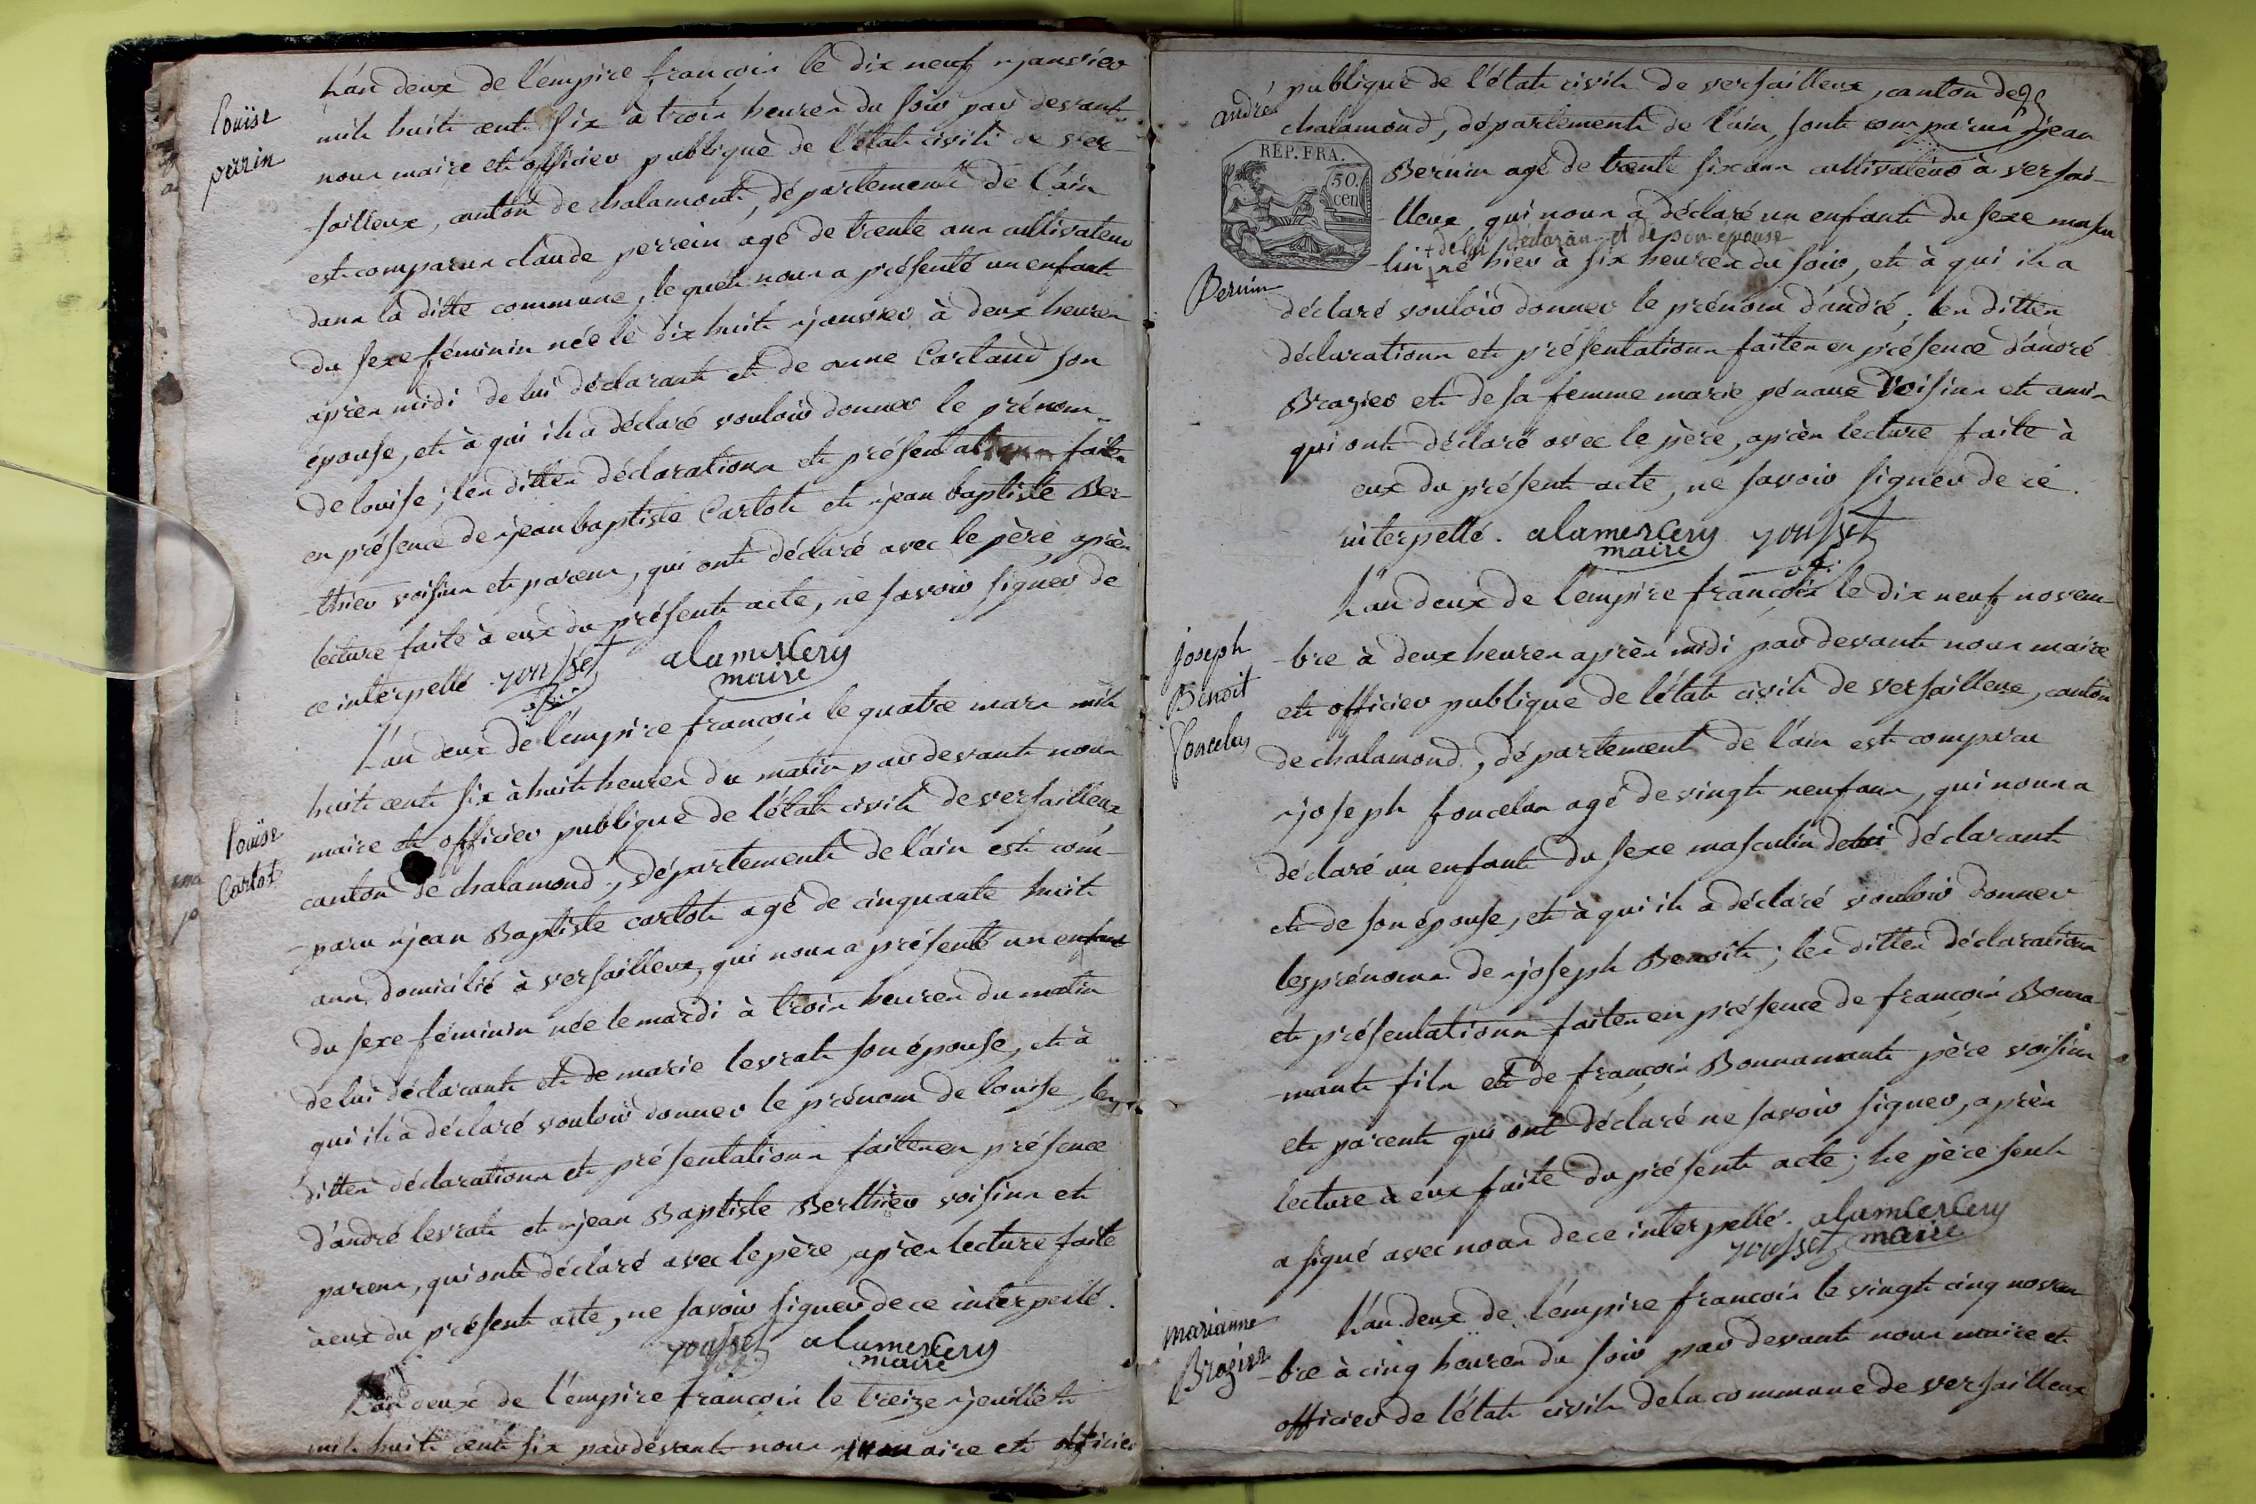 louise
perrin
L'an deux de l'empire françois le dix neuf janvier
mil huit cent six à trois heures du soir par devant
nous maire et officier publique de l'état civil de ver-
-sailleux, canton de chalamont, département de l'ain
est comparus claude perrein agé de trente ans cultivateur
dans la ditte commune, lequel nous a présenté un enfant
du sexe féminin née le dix huit janvier à deux heures
après midi de lui déclarant et de anne Cartaud son
épouse, et à qui il a déclaré vouloir donner le prénom
de louise; les dittes déclarations et présentations faites
en présence de jean baptiste Carlot et jean baptiste Ber-
-thier voisins et parens, qui ont déclaré avec le père, après
lecture faite à eux du présent acte, ne savoir signer de
ce interpellé alamercery
maire
louise
Carlot
L'an deux de l'empire françois le quatre mars mil
huit cent six à huit heures du matin par devant nous
maire et officier publique de l'état civil de versailleux
canton de chalamond, département de l'ain est com-
-paru jean Baptiste carlot agé de cinquante huit
ans, domicilié à versailleux, qui nous a présenté un enfant
du sexe féminin née le mardi à trois heures du matin
de lui déclarant et de marie levrat son épouse, et à
qui il a déclaré vouloir donner le prénom de louise, les
dittes déclarations et présentations faites en présence
d'andré levrat et jean Baptiste Berthier voisins et
parens, qui ont déclaré avec le père, après lecture faite
à eux du présent acte, ne savoir signer de ce interpellé.
alamercery
maire
L'an deux de l'empire françois le treize juillet
mil huit cent six par devant nous maire et officier
andré
Bernin
publique de l'état civil de versailleux, canton de
chalamond, département de l'ain, sont comparus jean
REP. FRA.
50.
cen
Bernin agé de trente six ans cultivateur à versai-
-lleux qui nous a déclaré un enfant du sexe mascu
+ de lui déclaran et de son epouse
-lin + né hier à six heures du soir, et à qui il a
déclaré vouloir donner le prénom d'andré; les dittes
déclarations et présentations faites en présence d'andré
Brazier et de sa femme marie voisins et amis
qui ont déclaré avec le père, après lecture faite à
eux du présent acte, ne savoir signer de ce
interpellé. alamercery
maire
joseph
Benoit
foncelas
L'an deux de l'empire françois le dix neuf novem-
-bre à deux heures après midi par devant nous maire
et officier publique de l'état civil de versailleux, canton
de chalamond, département de l'ain est comparu
joseph foncelas agé de vingt neuf ans, qui nous a
déclaré un enfant du sexe masculin de lui déclarant
et de son épouse, et à qui il a déclaré vouloir donner
les prénoms de joseph Benoit; les dittes déclarations
et présentations faites en présence de françois Bonna-
-mant fils et de françois Bonnamant père voisins
et parent qui ont déclaré ne savoir signer, après
lecture à eux faite du présent acte; le père seul
a signé avec nous de ce interpellé. alamercery
maire
marianne
Brazier
L'an deux de l'empire françois le vingt cinq novem
-bre à cinq heures du soir par devant nous maire et
officier de l'état civil de la commune de versailleux